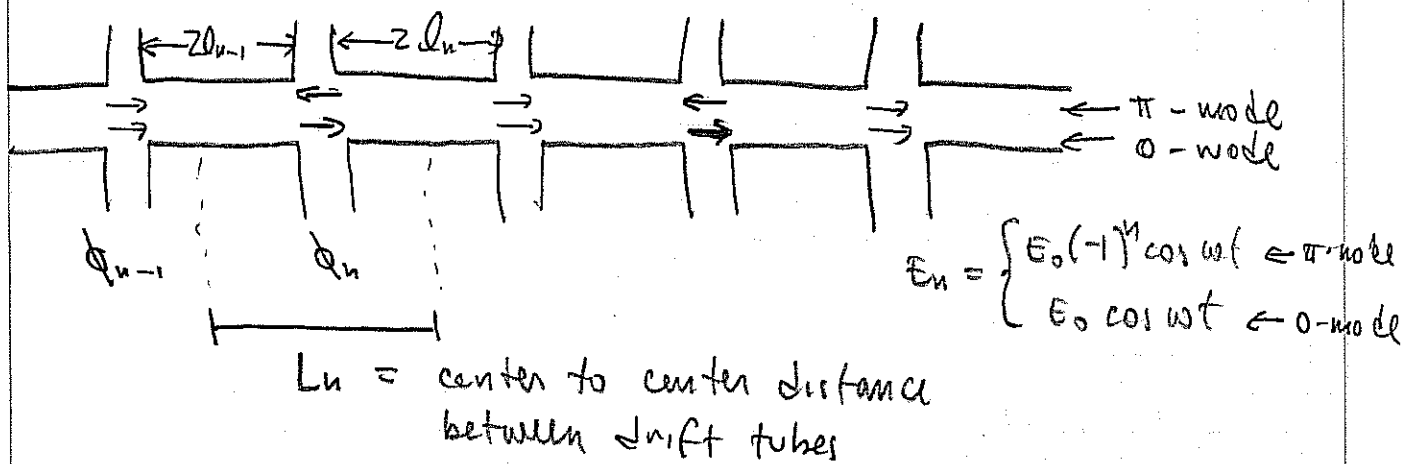 2l_{n-1} 2l_n
← π-mode
← 0-mode
ϕ_{n-1} ϕ_n
E_n = { E_0 (-1)^n cos ωt ← π-mode
E_0 cos ωt ← 0-mode
L_n = center to center distance
between drift tubes